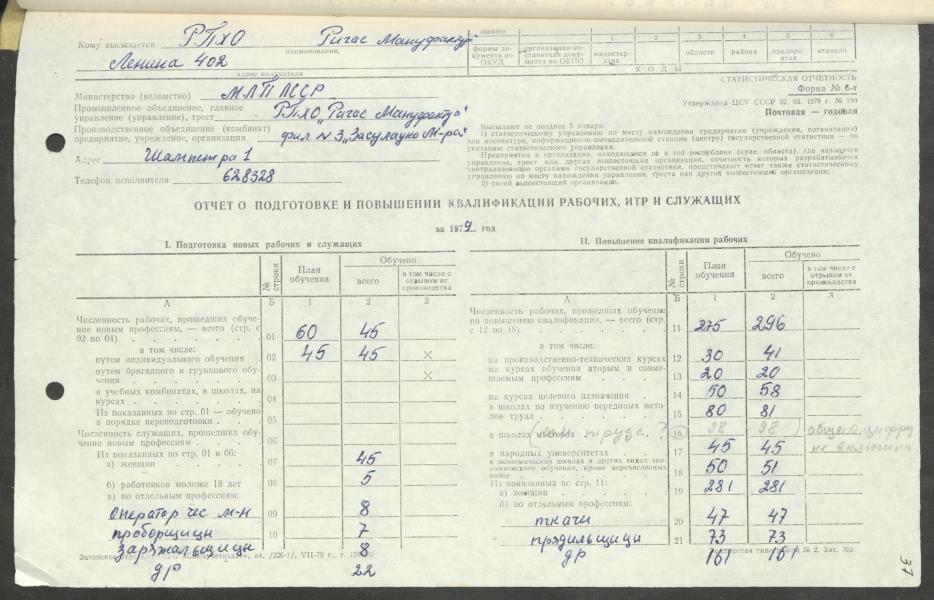 Кому высылается РПХО Ригас Мануфактур
наименование,
Ленина 402
адрес получателя
формы документа по ОКУД
организации-составителя документа по ОКПО
министерства
области
района
предприятия
отрасли
1 2 3 4 5 6
КОДЫ
СТАТИСТИЧЕСКАЯ ОТЧЕТНОСТЬ
Форма № 6-т
Утверждена ЦСУ СССР 02. 03. 1978 г. № 190
Почтовая — годовая
Министерство (ведомство) МЛП ЛССР
Промышленное объединение, главное
управление (управление), трест РПХО „Ригас Мануфактура"
Производственное объединение (комбинат)
предприятие, учреждение, организация фил N 3 „Засулаука М-ра"
Адрес Шампетра 1
Телефон исполнителя 628328
Высылают не позднее 5 января:
1) статистическому управлению по месту нахождения предприятия (учреждения, организации)
или инспектуре, информационно-вычислительной станции (центру) государственной статистики — по
указанию статистического управления.
Предприятия и организации, находящиеся не в той республике (крае, области), где находятся
управление, трест или другая вышестоящая организация, отчетность которых разрабатывается
централизованно органами государственной статистики, представляют отчет также статистическому
управлению по месту нахождения управления, треста или другой вышестоящей организации;
2) своей вышестоящей организации.
ОТЧЕТ О ПОДГОТОВКЕ И ПОВЫШЕНИИ КВАЛИФИКАЦИИ РАБОЧИХ, ИТР И СЛУЖАЩИХ
за 1979 год
I. Подготовка новых рабочих и служащих
№ строки
План обучения
Обучено
всего
в том числе с отрывом от производства
А Б 1 2 3
Численность рабочих, прошедших обуче-
ние новым профессиям, — всего (стр. с
02 по 04) 01 60 45
в том числе:
путем индивидуального обучения 02 45 45 ×
путем бригадного и группового обу-
чения 03 ×
в учебных комбинатах, в школах, на
курсах 04
Из показанных по стр. 01 — обучено
в порядке переподготовки 05
Численность служащих, прошедших обу-
чение новым профессиям 06
Из показанных по стр. 01 и 06:
а) женщин 07 45
б) работников моложе 18 лет 08 5
в) по отдельным профессиям:
оператор чес м-н 09 8
проборщицы 10 7
8
др 22
II. Повышение квалификации рабочих
№ строки
План обучения
Обучено
всего
в том числе с отрывом от производства
А Б 1 2 3
Численность рабочих, прошедших обучение
по повышению квалификации, — всего (стр.
с 12 по 18) 11 275 296
в том числе:
на производственно-технических курсах 12 30 41
на курсах обучения вторым и совме-
щаемым профессиям 13 20 20
на курсах целевого назначения 14 50 58
в школах по изучению передовых мето-
дов труда 15 80 81
в школах труда ? 16 98 98 общей цифру
не включена
в народных университетах 17 45 45
в экономических школах и других видах эко-
номического обучения, кроме перечисленных
выше 18 50 51
Из показанных по стр. 11:
а) женщин 19 281 281
б) по отдельным профессиям:
ткачи 20 47 47
прядильщицы 21 73 73
др 161
37